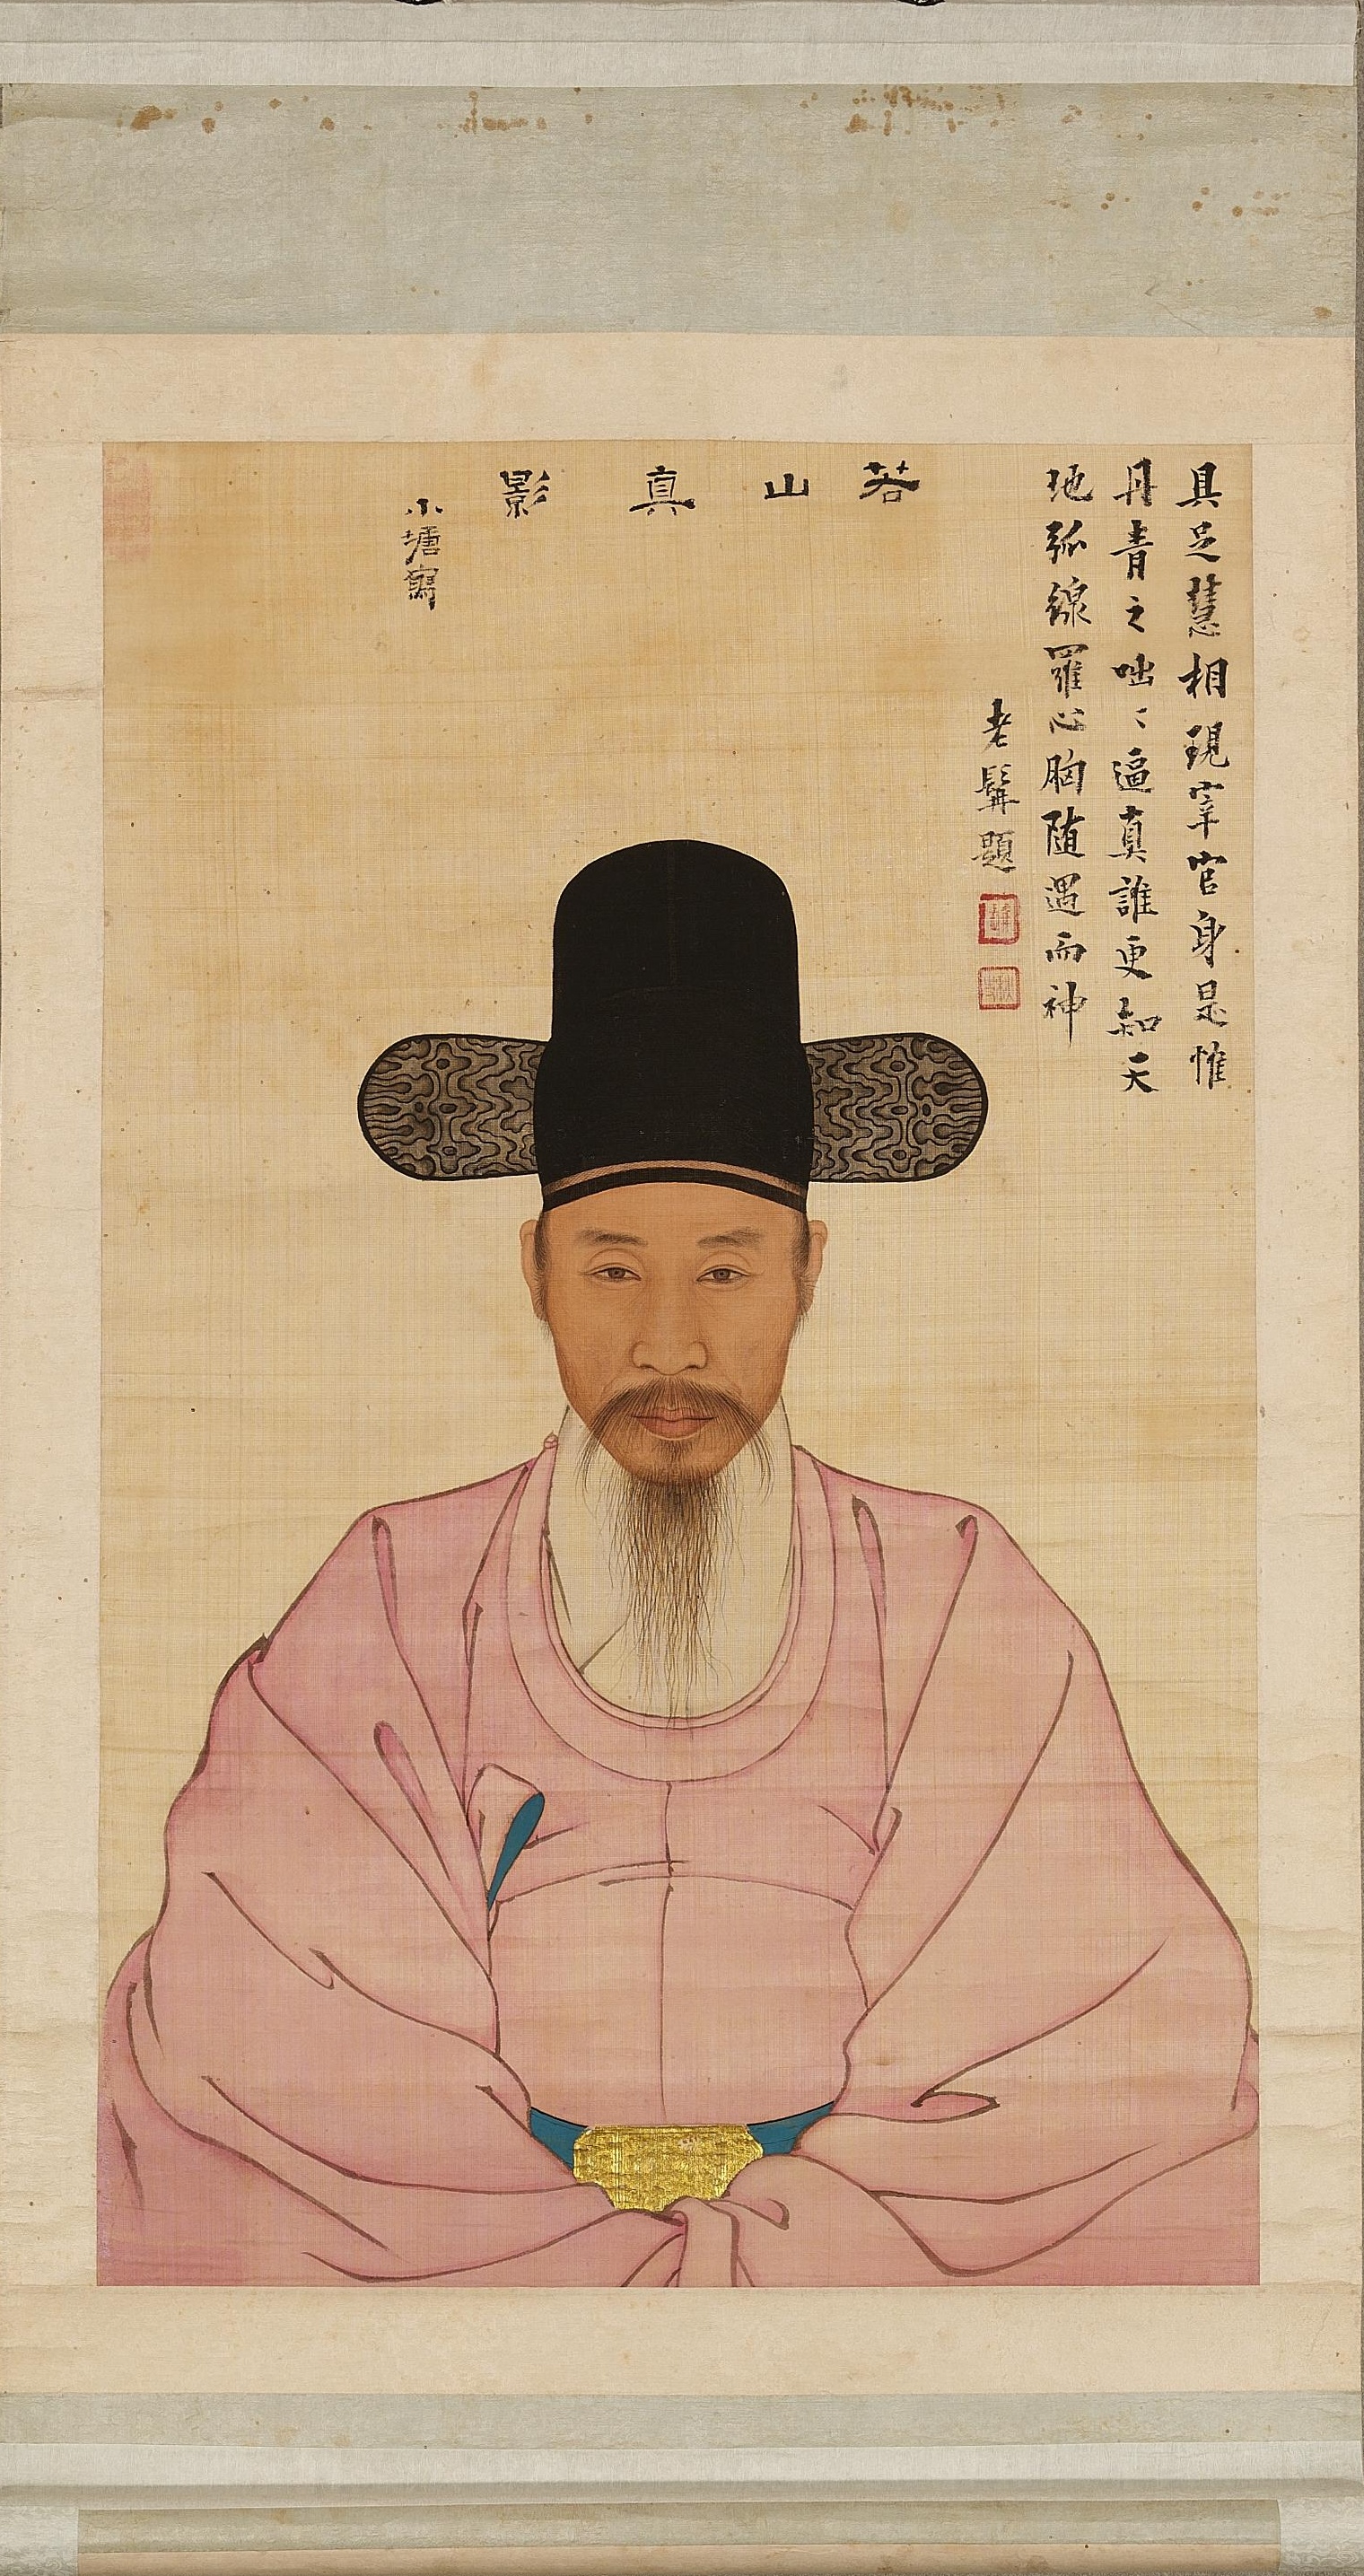 具足慧相現宰官身是惟
丹青之咄〻逼真誰更知天
地弧線羅心胸随遇而神
老髯題
若山真影
小塘寫